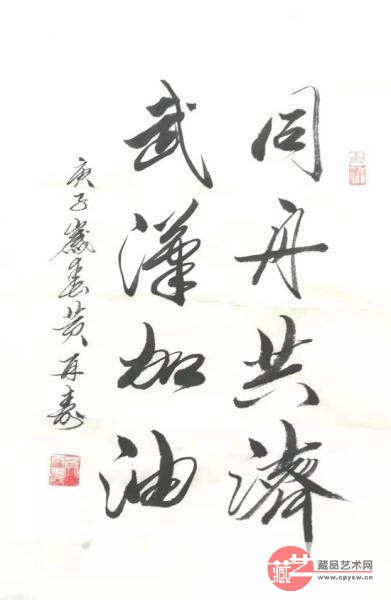 同舟共濟
武漢加油
庚子歲春黄再壽
藏艺
藏品艺术网
www.cpysw.cn